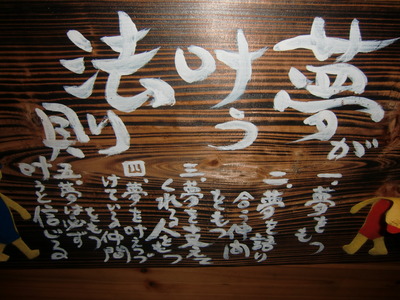 夢が
叶う
法則
一、夢を
もつ
二、夢を語り
合う仲間
をもつ
三、夢を支えて
くれる人をもつ
四、夢を叶えつづ
けている仲間
をもつ
五、夢は必ず
叶うと信じる